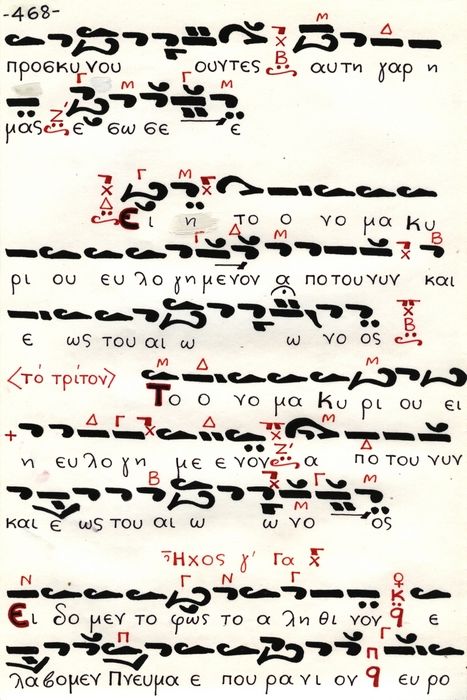 -468-
προσκυνου ουντες αυτη γαρ η
μας ε σωσε ε
Ει η το ο νο μα Κυ
ρι ου ευ λο γη μενον α πο του νυν και
ε ως του αι ω ω νο ος
<το τρίτον> Το ο νο μα Κυ ρι ου ει
η ευ λο γη με ε νον α πο του νυν
και ε ως του αι ω ω νο ος
Ἦχος γ' Γα
Ει δο μεν το φως το α λη θι νον ε
λαβομεν Πνευμα ε που ρα νι ον ευ ρο